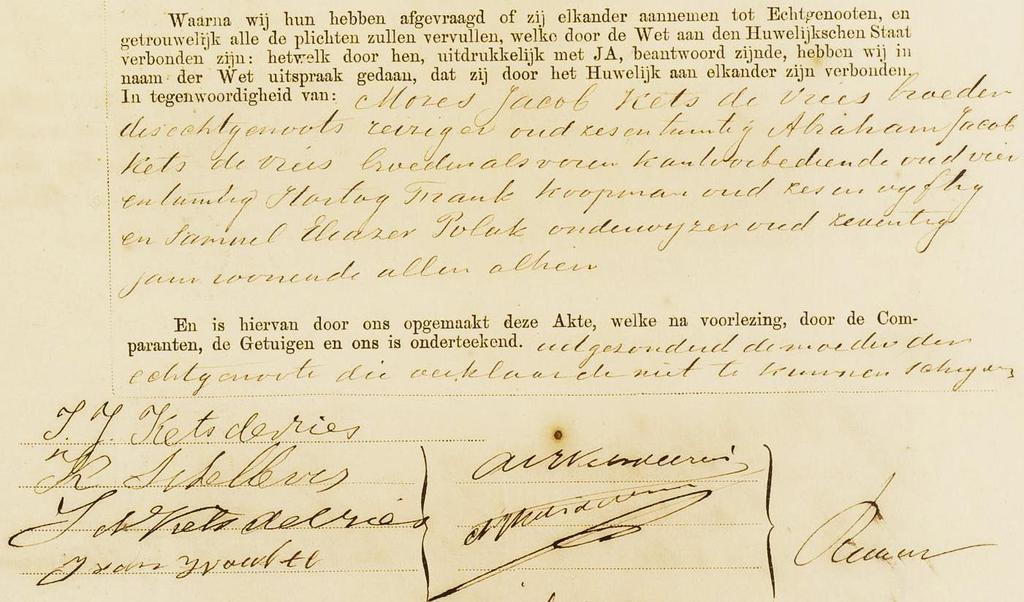 Waarna wij hun hebben afgevraagd of zij elkander aannemen tot Echtgenooten, en
getrouwelijk alle de plichten zullen vervullen, welke door de Wet aan den Huwelijkschen Staat
verbonden zijn: hetwelk door hen, uitdrukkelijk met JA, beantwoord zijnde, hebben wij in
naam der Wet uitspraak gedaan, dat zij door het Huwelijk aan elkander zijn verbonden.
In tegenwoordigheid van: Mozes Jacob Kets de Vries broeder
des echtgenoots reiziger oud zesentwintig Abraham Jacob
Kets de Vries broeder als voren kantoorbediende oud vier
entwintig Hartog Frank koopman oud zes en vyftig
en Samuel Eleazer Polak onderwyzer oud zeventig
jaar wonende allen alhier
En is hiervan door ons opgemaakt deze Akte, welke na voorlezing, door de Com-
paranten, de Getuigen en ons is onderteekend. uitgezonderd de moeder der
echtgenoote die verklaarde niet te kunnen schryven
J. J. Kets de Vries
R Schellevis
Kets de Vries